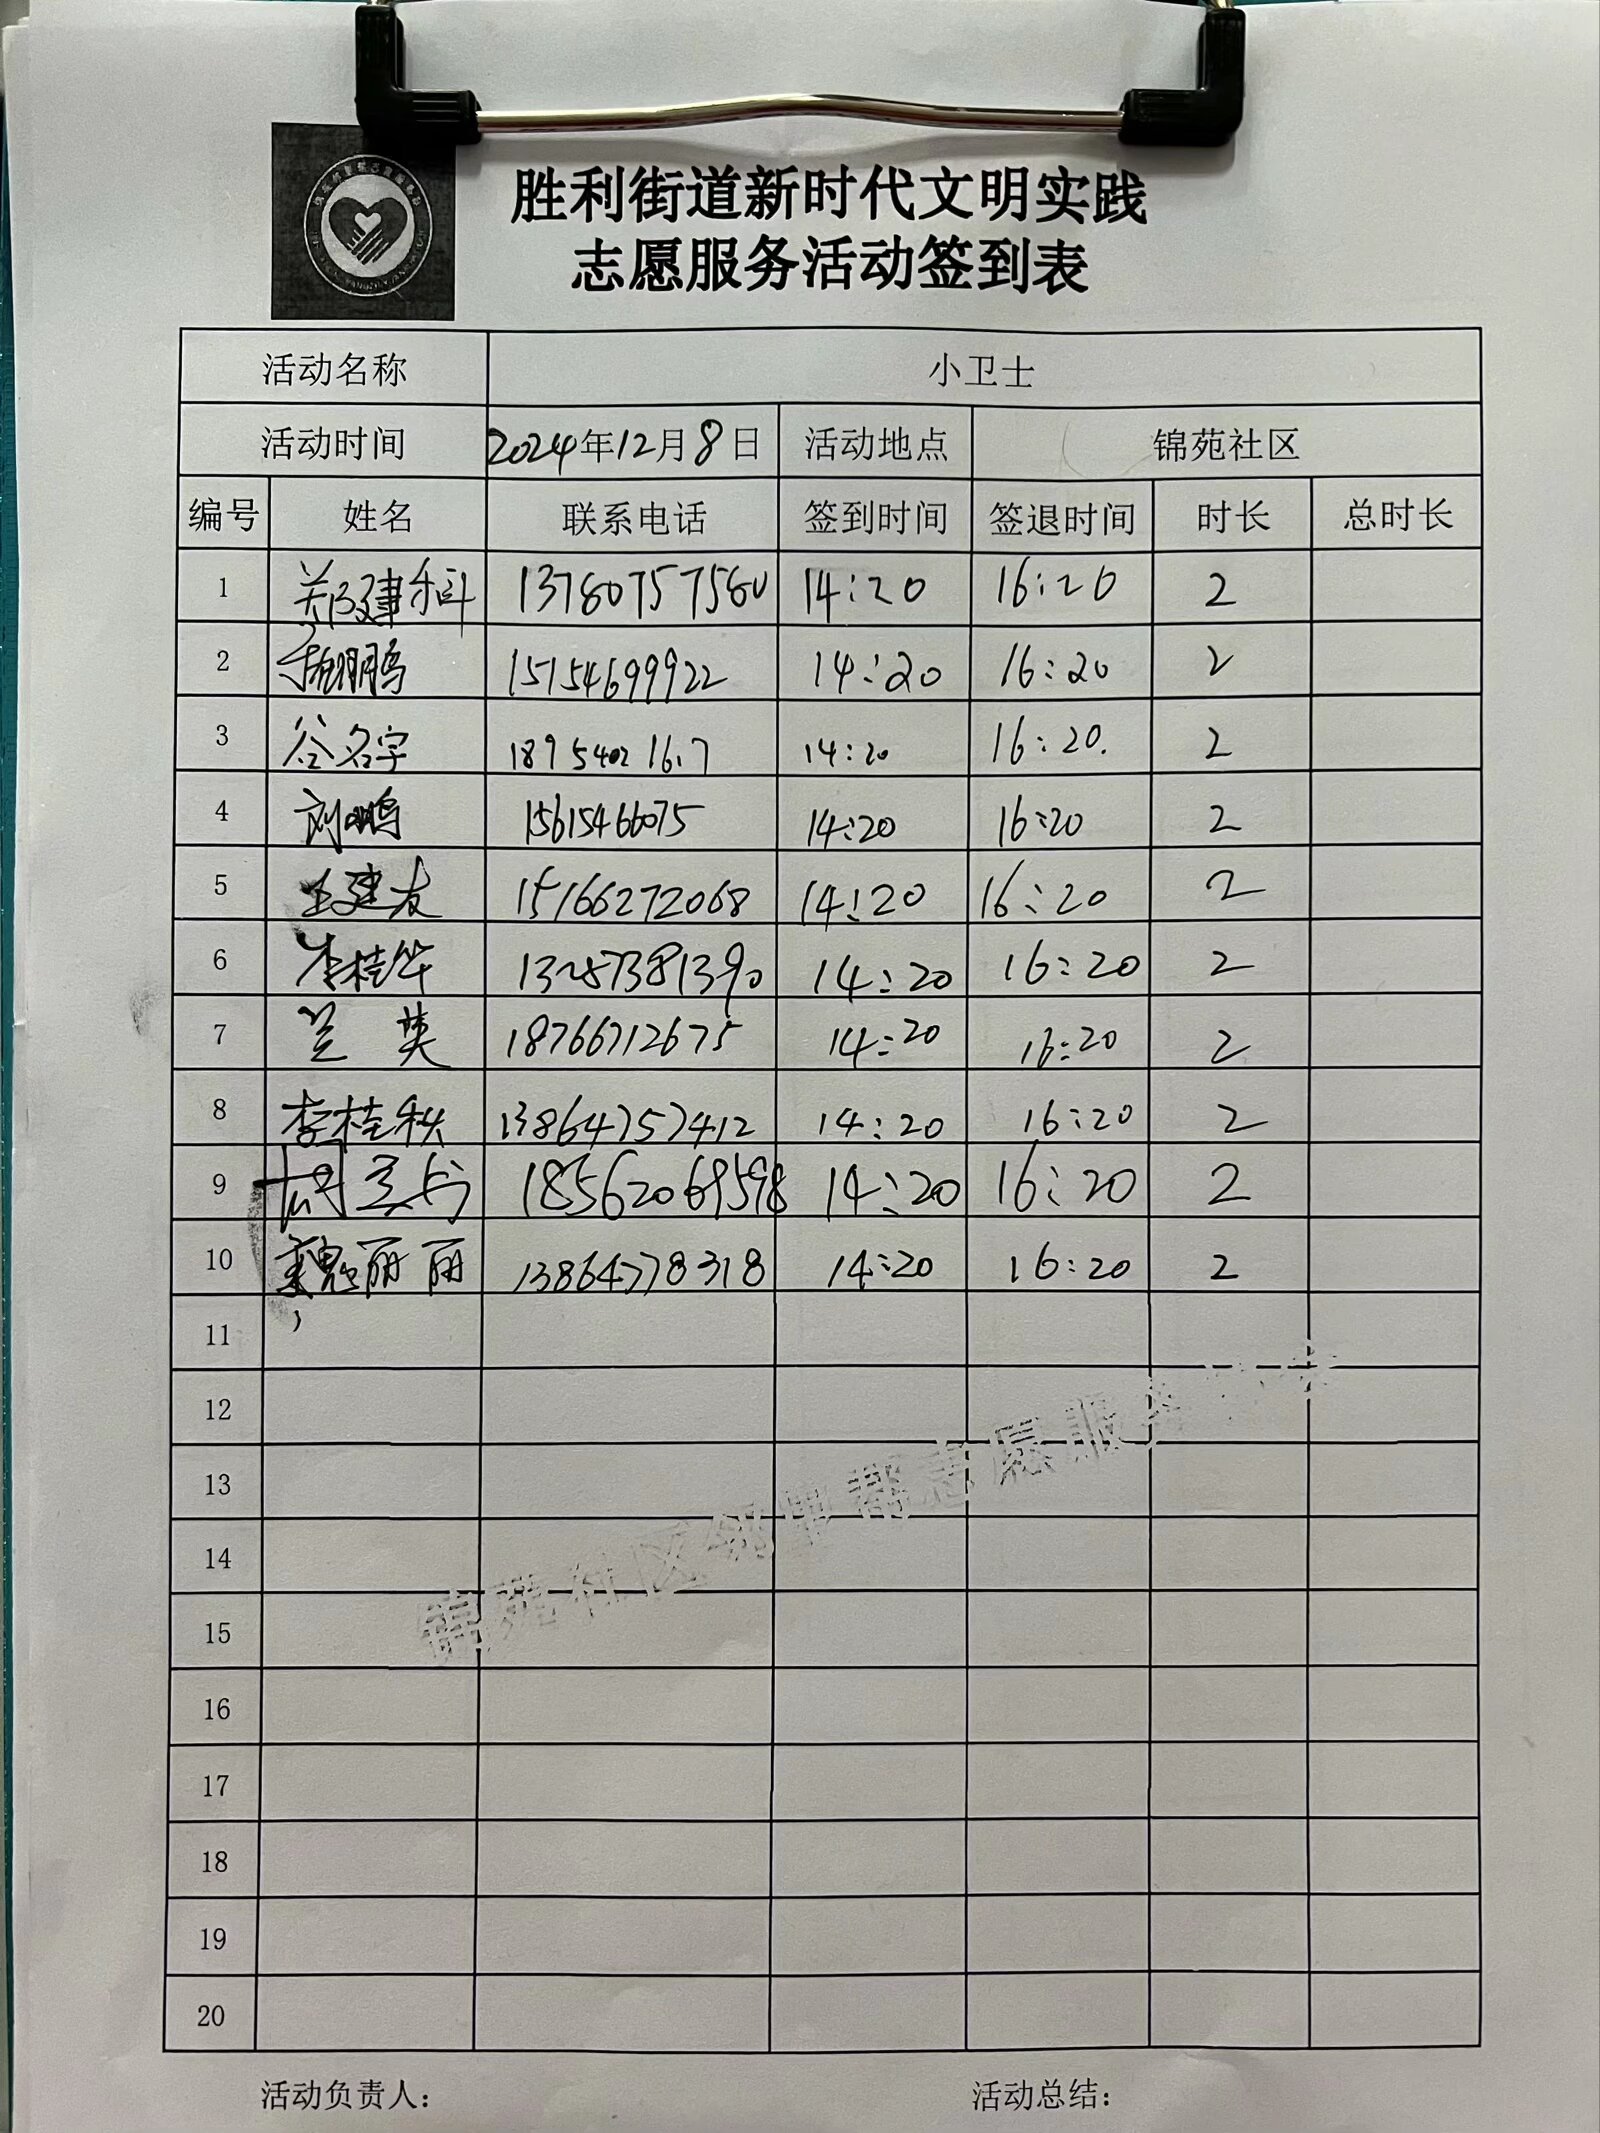 胜利街道新时代文明实践
志愿服务活动签到表
活动名称 小卫士
活动时间 2024年12月8日 活动地点 锦苑社区
编号 姓名 联系电话 签到时间 签退时间 时长 总时长
1 郑建科 13780757580 14:20 16:20 2
2 鹏 15154699922 14:20 16:20 2
3 谷名字 1895402 16.7 14:20 16:20. 2
4 刘鹏 15615466075 14:20 16:20 2
5 王建友 15166272068 14:20 16:20 2
6 李桂华 13257381390 14:20 16:20 2
7 兰英 18766712675 14:20 16:20 2
8 李桂秋 13864757412 14:20 16:20 2
9 周 18562069598 14:20 16:20 2
10 魏丽丽 13864778318 14:20 16:20 2
11
12
13
14
15
16
17
18
19
20
锦苑社区邻里帮志愿服务
活动负责人： 活动总结：